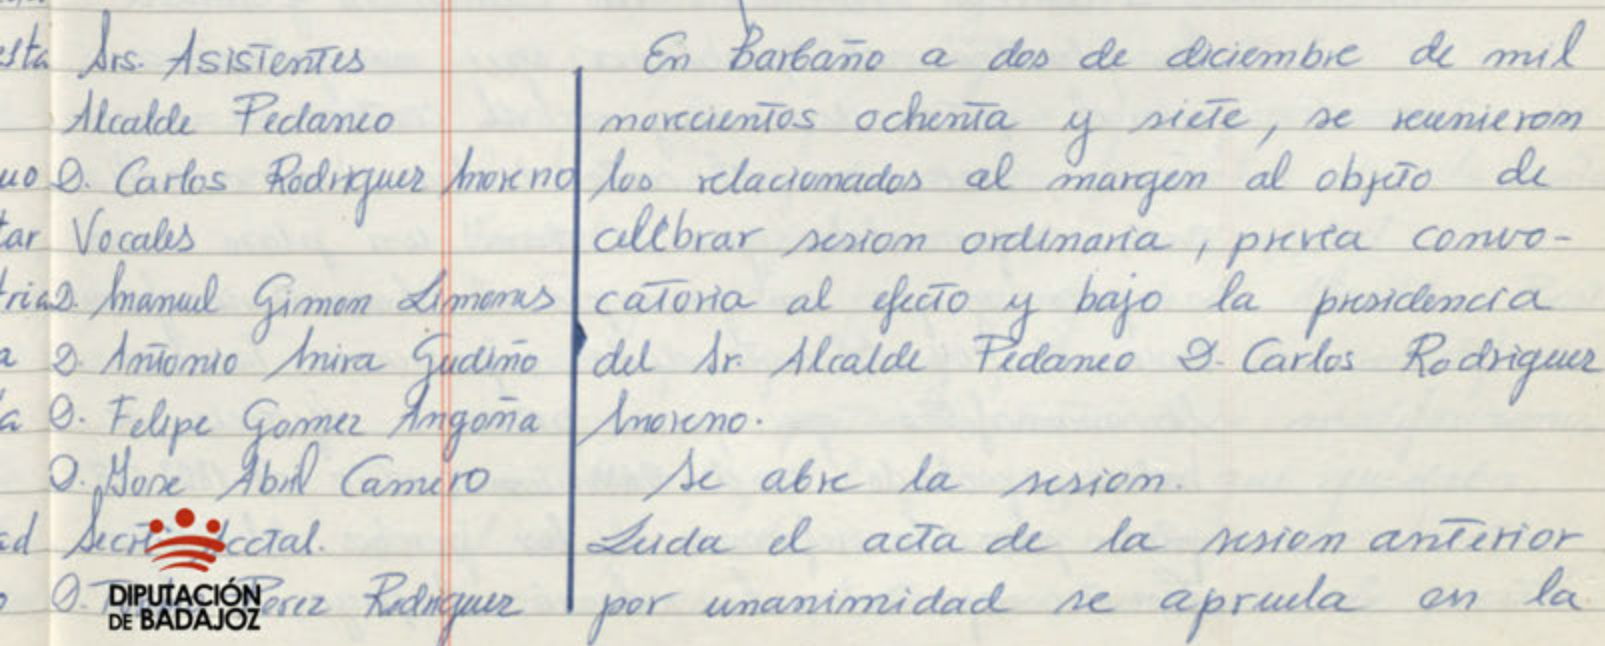 esta
Srs. Asistentes
Alcalde Pedaneo
D. Carlos Rodriguez Moreno
Vocales
D. Manuel Gimon
D. Antonio Mira Gudiño
D. Felipe Gomez Angoña
D. Jose Abril Camero
Acctal.
D. Perez Rodriguez
En Barbaño a dos de diciembre de mil
novecientos ochenta y siete, se reunieron
los relacionados al margen al objeto de
celebrar sesion ordinaria, previa convo-
catoria al efecto y bajo la presidencia
del Sr. Alcalde Pedaneo D. Carlos Rodriguez
Moreno.
Se abre la sesion.
Leida el acta de la sesion anterior
por unanimidad se aprueba en la
DIPUTACIÓN
DE BADAJOZ